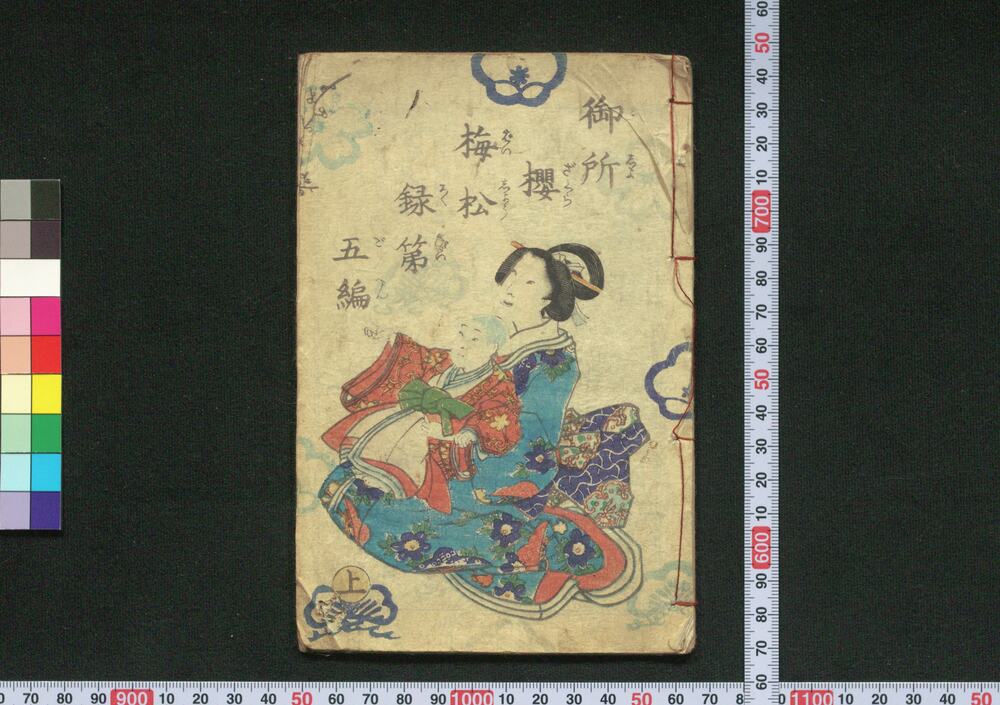 御所
櫻
梅松
録第
五編
上
60
50
40
30
20
10
700
90
80
70
60
50
40
30
20
10
600
90
80
70
60
70 80 90 900 10 20 30 40 50 60 70 80 90 1000 10 20 30 40 50 60 70 8 0 1100 10 20 30 40 50